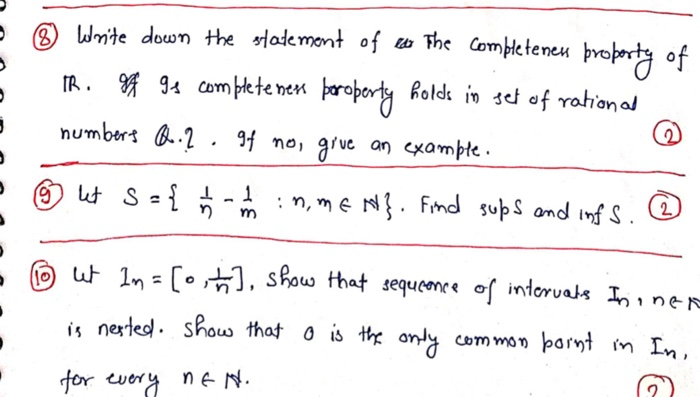 ⑧ Write down the statement of The Completeness property of
IR. Is completeness property holds in set of rational
numbers Q.?. If no, give an example. ②
⑨ Let S = { 1/n - 1/m : n, m ∈ N}. Find sup S and inf S. ②
⑩ Let In = [0, 1/n], Show that sequence of intervals In, n∈N
is nested. Show that 0 is the only common point in In,
for every n ∈ N. ②